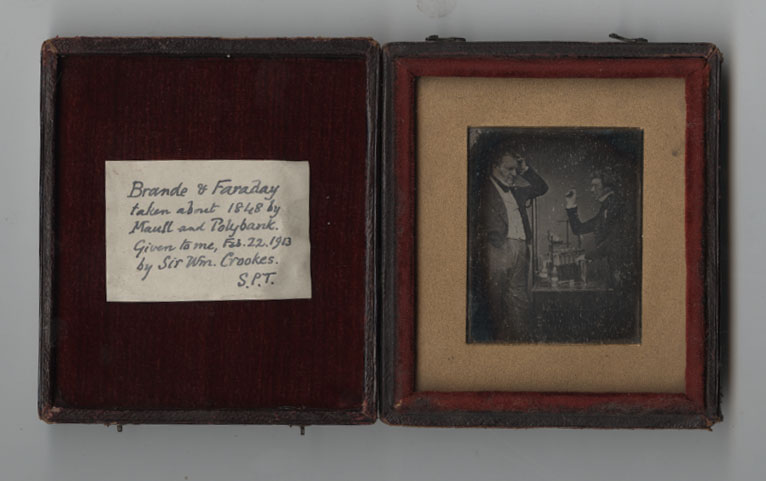 Brande & Faraday
taken about 1848 by
Maull and Polybank.
Given to me, Feb. 22. 1913
by Sir Wm. Crookes.
S.P.T.